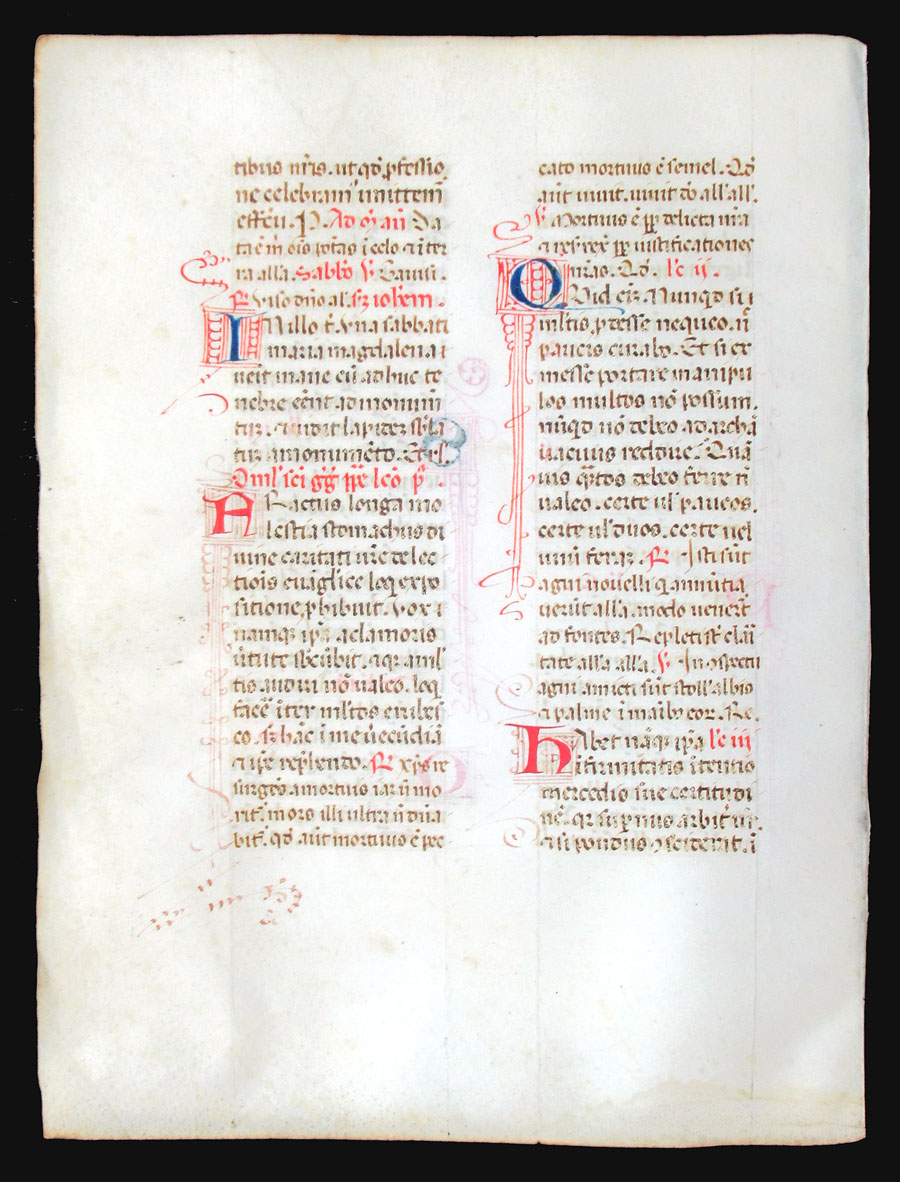 tibus nr̄is. ut qđ ꝓfessio
ne celebram' imittem̄
effcū. P. Ad oꝫ añ Da
ta ē m̄ oīs ptās i celo ⁊ i ter
ra alla. Sabbō ℣ Gavisi
℟ Viso dn̄o al. Sꝫ ioħem.
IN illo t̄. Vna sabbati
maria magdalena
ueīt mane cū adhuc te
nebre eēnt ad monum
tū. ⁊ uidit lapidem sb̄la
tū a monumēto. Et rl̄.
Oml' sc̄i gḡ ꝑꝑe lcō p̄.
FRactus longa mo
lestia stomachus di
u me caritati ur̄e de lec
tiois euāglice loq̄ expo
sitione ꝓhibuit. Vox
namqꝫ ip̄a a clamoris
ūtute sb̄cūbit. ⁊ qꝛ a ml'
tis audiri nō ualeo. loq̄
fateē īter ml̄tos erubes
co. Sꝫ hāc ī me ūecūdiā
⁊ ip̄e rep̄hendo. ℟ Xp̄s re
surgēs a mortuis iaꝫ n̄ mo
rit̄. mors illi ultra n̄ dn̄a
bit̄. qđ aūt mortuus ē pec
cato mortuus ē semel. Qđ
aūt uiuit. uiuit đo all'a all'.
℣ Mortuus ē ꝓꝑ delicta nr̄a
⁊ resr̄rex̄ ꝓꝑ iustificationes
nr̄as. Qđ. l'c ii.
QUid eīꝫ. Nunqđ si ī
ml̄tis ꝓdesse nequeo. n̄
paucis curabo. Et si ex
messe portare manipu
los multos nō possum.
nūqđ nō debeo ad areā
uacuus reddire. Quā
uis q̄ntos debeo ferre n̄
ualeo. certe ul' paucos.
certe ul' duos. certe uel
unū ferā. ℟ Isti sūt
agni nouelli q̄ annūtia
uerūt all'a. modo uenerūt
ad fontes. Repleti st̄ clari
tate all'a all'a. ℣ In cspectu
agni amicti sūt stoll' albis
⁊ palme ī maībꝫ eoꝝ. Re.
HAbet nāqꝫ ip̄a l'c iii
īfirmitatis ītentio
mercedis sue certitudi
nē. qꝛ suꝑnus arbiter
⁊ si pondus ꝯsiderit. ī